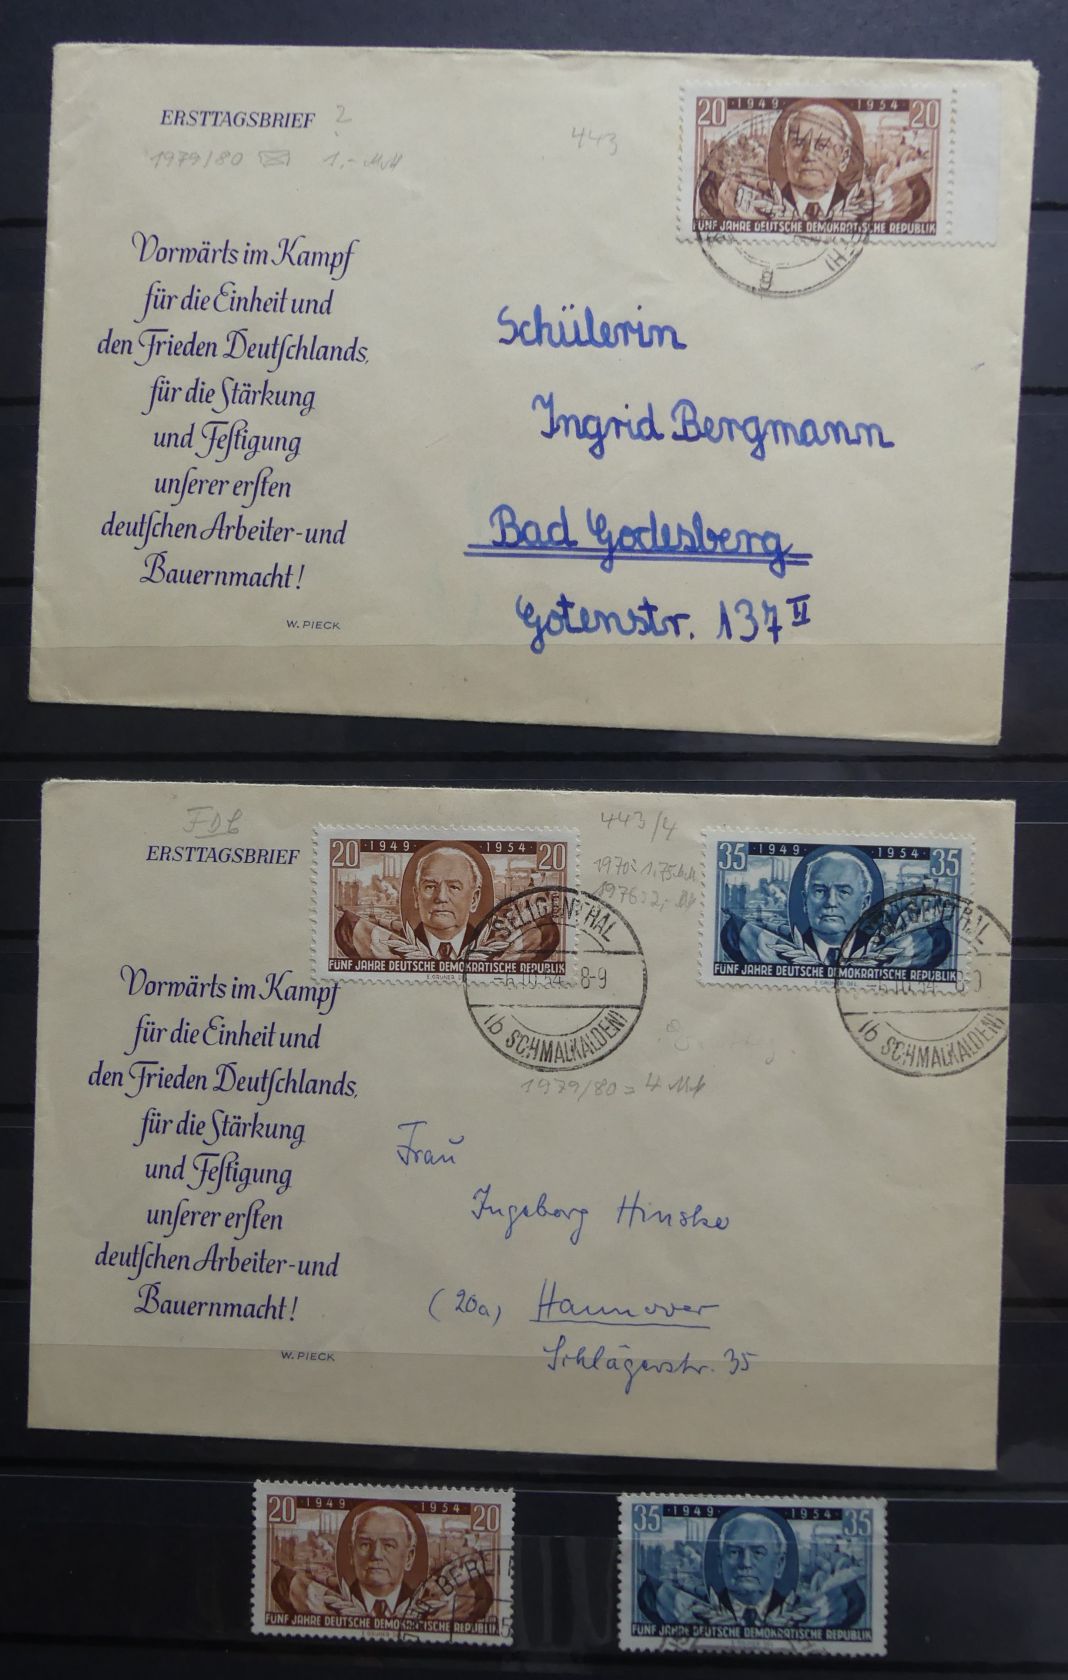 ERSTTAGSBRIEF ?
1979/80 1,- MM
443
20 · 1949 · 1954 · 20
FÜNF JAHRE DEUTSCHE DEMOKRATISCHE REPUBLIK
g
Vorwärts im Kampf
für die Einheit und
den Frieden Deutschlands,
für die Stärkung
und Festigung
unserer ersten
deutschen Arbeiter- und
Bauernmacht!
W. PIECK
Schülerin
Ingrid Bergmann
Bad Godesberg
Gotenstr. 137 II
FDC
ERSTTAGSBRIEF
20 · 1949 · 1954 · 20
FÜNF JAHRE DEUTSCHE DEMOKRATISCHE REPUBLIK
E. GRUNER DEL.
443/4
35 · 1949 · 1954 · 35
FÜNF JAHRE DEUTSCHE DEMOKRATISCHE REPUBLIK
E. GRUNER DEL.
SELIGENTHAL
-6.10.54 8-9
(b SCHMALKALDEN)
SELIGENTHAL
-6.10.54 8-9
(b SCHMALKALDEN)
1979/80 = 4 MM
Vorwärts im Kampf
für die Einheit und
den Frieden Deutschlands,
für die Stärkung
und Festigung
unserer ersten
deutschen Arbeiter- und
Bauernmacht!
W. PIECK
Frau
Ingeborg Hinske
(20a) Hannover
Schlägerstr. 35
20 · 1949 · 1954 · 20
FÜNF JAHRE DEUTSCHE DEMOKRATISCHE REPUBLIK
35 · 1949 · 1954 · 35
FÜNF JAHRE DEUTSCHE DEMOKRATISCHE REPUBLIK